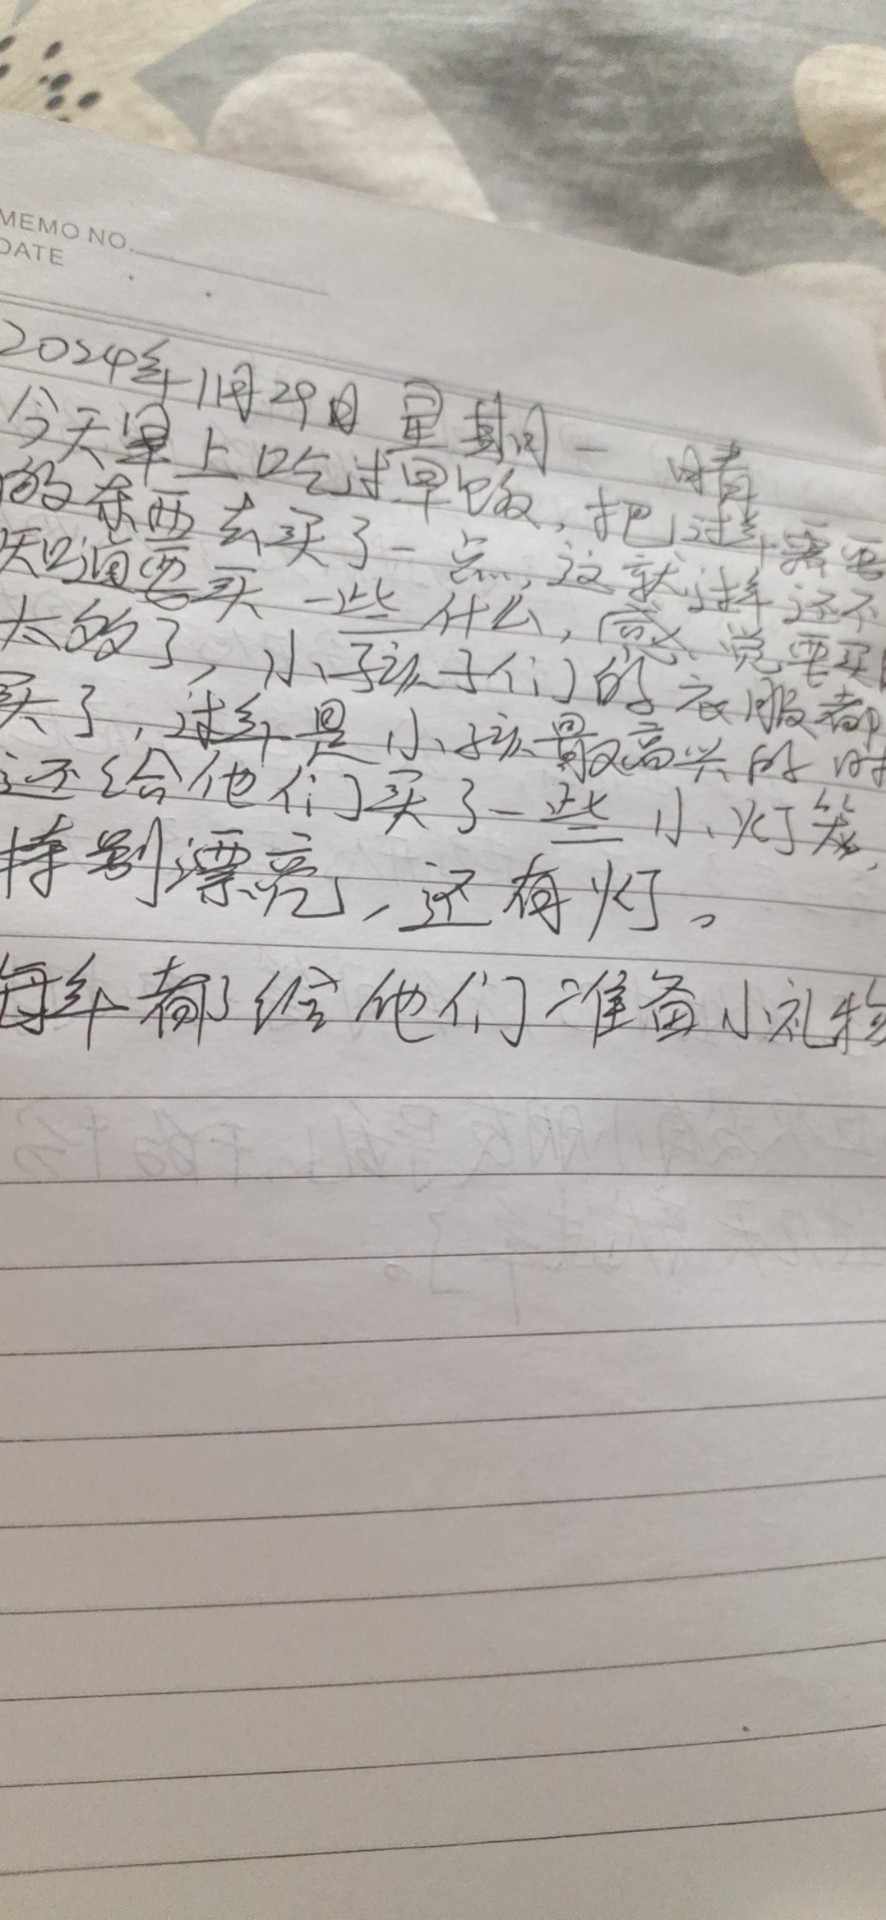 MEMO NO.
DATE
2024年11月29日 星期一 晴
今天早上吃过早饭,把过年需要
的东西去买了一点,这就样还不
知道要买一些什么,感觉要买
太多了,小孩子们的衣服都
买了,过年是小孩最高兴的时
还给他们买了一些小灯笼,
特别漂亮,还有灯。
每年都给他们准备小礼物